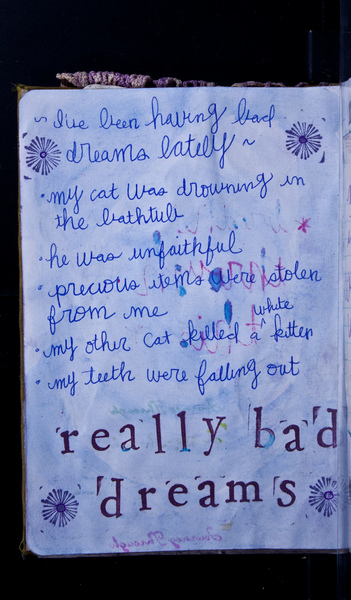 ~ I've been having bad
dreams lately ~
• my cat was drowning in
the bathtub
• he was unfaithful
• precious items were stolen
from me
• my other cat killed a white kitten
• my teeth were falling out
really bad
dreams